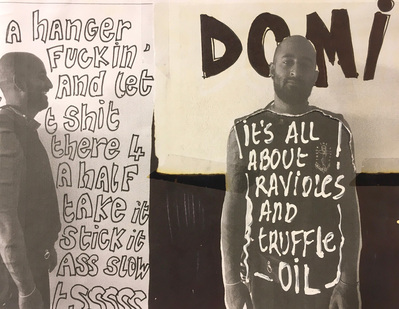 A HANGER
FUCKIN'
AND LET
t SHIT
tHERE 4
A HALF
TAKE it
STICK it
ASS SLOW
tSSSSS
DOMi
it'S ALL
ABOUT
RAVIOLES
AND
tRUFFLE
OIL